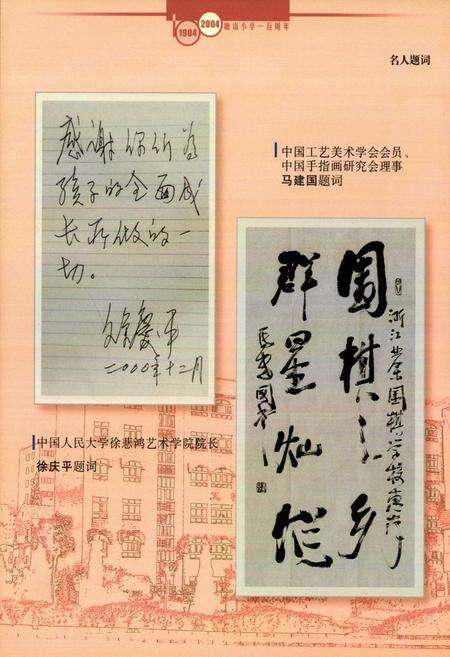 1904 2004 唐山小学一百周年
名人题词
感谢你们为
孩子的全面成
长所做的一
切。
徐庆平
二000年十二月
中国人民大学徐悲鸿艺术学院院长
徐庆平题词
中国工艺美术学会会员、
中国手指画研究会理事
马建国题词
围棋之乡
群星灿烂